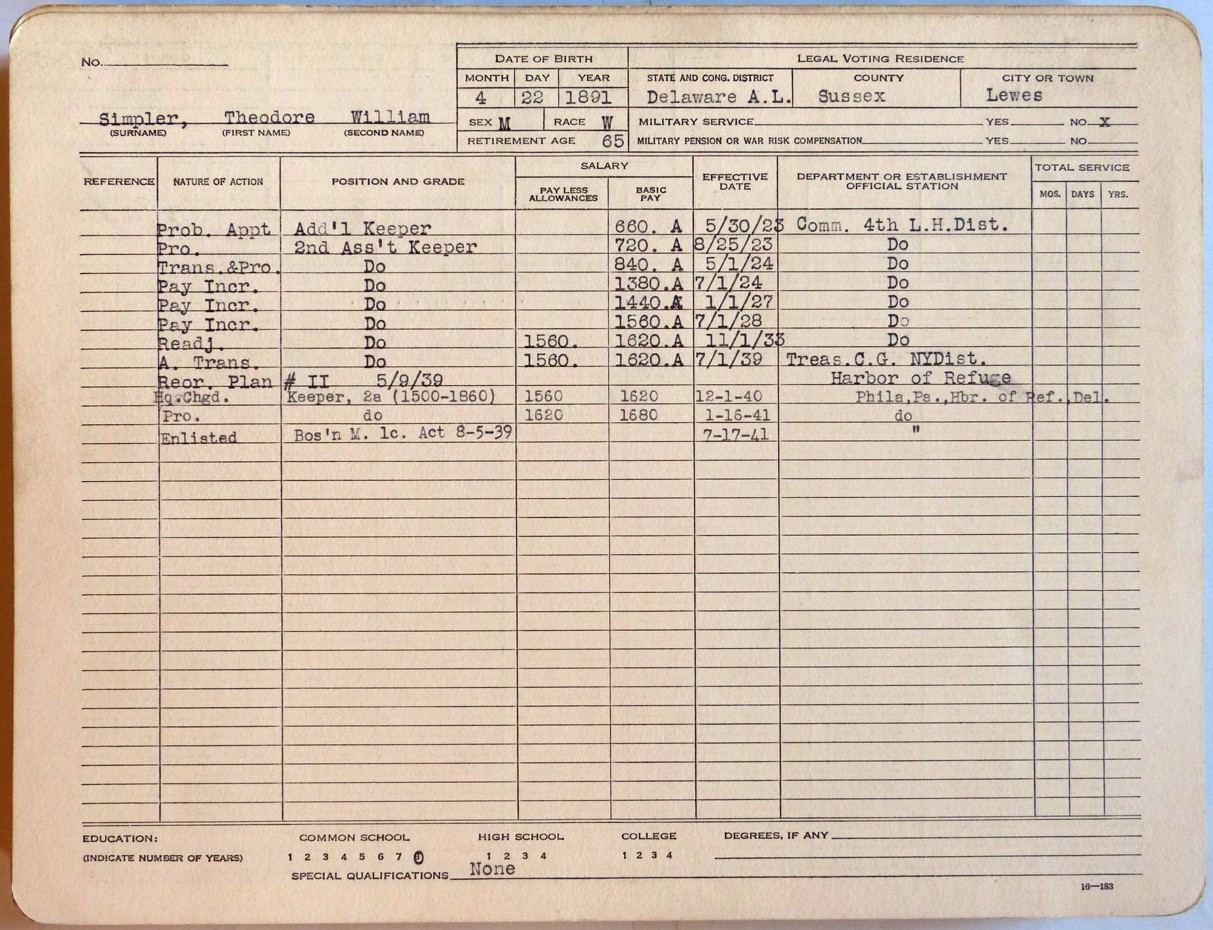 No.
DATE OF BIRTH LEGAL VOTING RESIDENCE
MONTH DAY YEAR STATE AND CONG. DISTRICT COUNTY CITY OR TOWN
4 22 1891 Delaware A.L. Sussex Lewes
Simpler, Theodore William SEX M RACE W MILITARY SERVICE YES NO X
(SURNAME) (FIRST NAME) (SECOND NAME) RETIREMENT AGE 65 MILITARY PENSION OR WAR RISK COMPENSATION YES NO
REFERENCE NATURE OF ACTION POSITION AND GRADE SALARY EFFECTIVE DATE DEPARTMENT OR ESTABLISHMENT OFFICIAL STATION TOTAL SERVICE
PAY LESS ALLOWANCES BASIC PAY MOS. DAYS YRS.
Prob. Appt Add'l Keeper 660. A 5/30/23 Comm. 4th L.H.Dist.
Pro. 2nd Ass't Keeper 720. A 8/25/23 Do
Trans.&Pro. Do 840. A 5/1/24 Do
Pay Incr. Do 1380.A 7/1/24 Do
Pay Incr. Do 1440.A 1/1/27 Do
Pay Incr. Do 1560.A 7/1/28 Do
Readj. Do 1560. 1620.A 11/1/33 Do
A. Trans. Do 1560. 1620.A 7/1/39 Treas.C.G. NYDist.
Reor. Plan # II 5/9/39 Harbor of Refuge
Hq.Chgd. Keeper, 2a (1500-1860) 1560 1620 12-1-40 Phila,Pa.,Hbr. of Ref.,Del.
Pro. do 1620 1680 1-16-41 do
Enlisted Bos'n M. 1c. Act 8-5-39 7-17-41 "
EDUCATION: COMMON SCHOOL HIGH SCHOOL COLLEGE DEGREES, IF ANY
(INDICATE NUMBER OF YEARS) 1 2 3 4 5 6 7 8 1 2 3 4 1 2 3 4
SPECIAL QUALIFICATIONS None
16—183